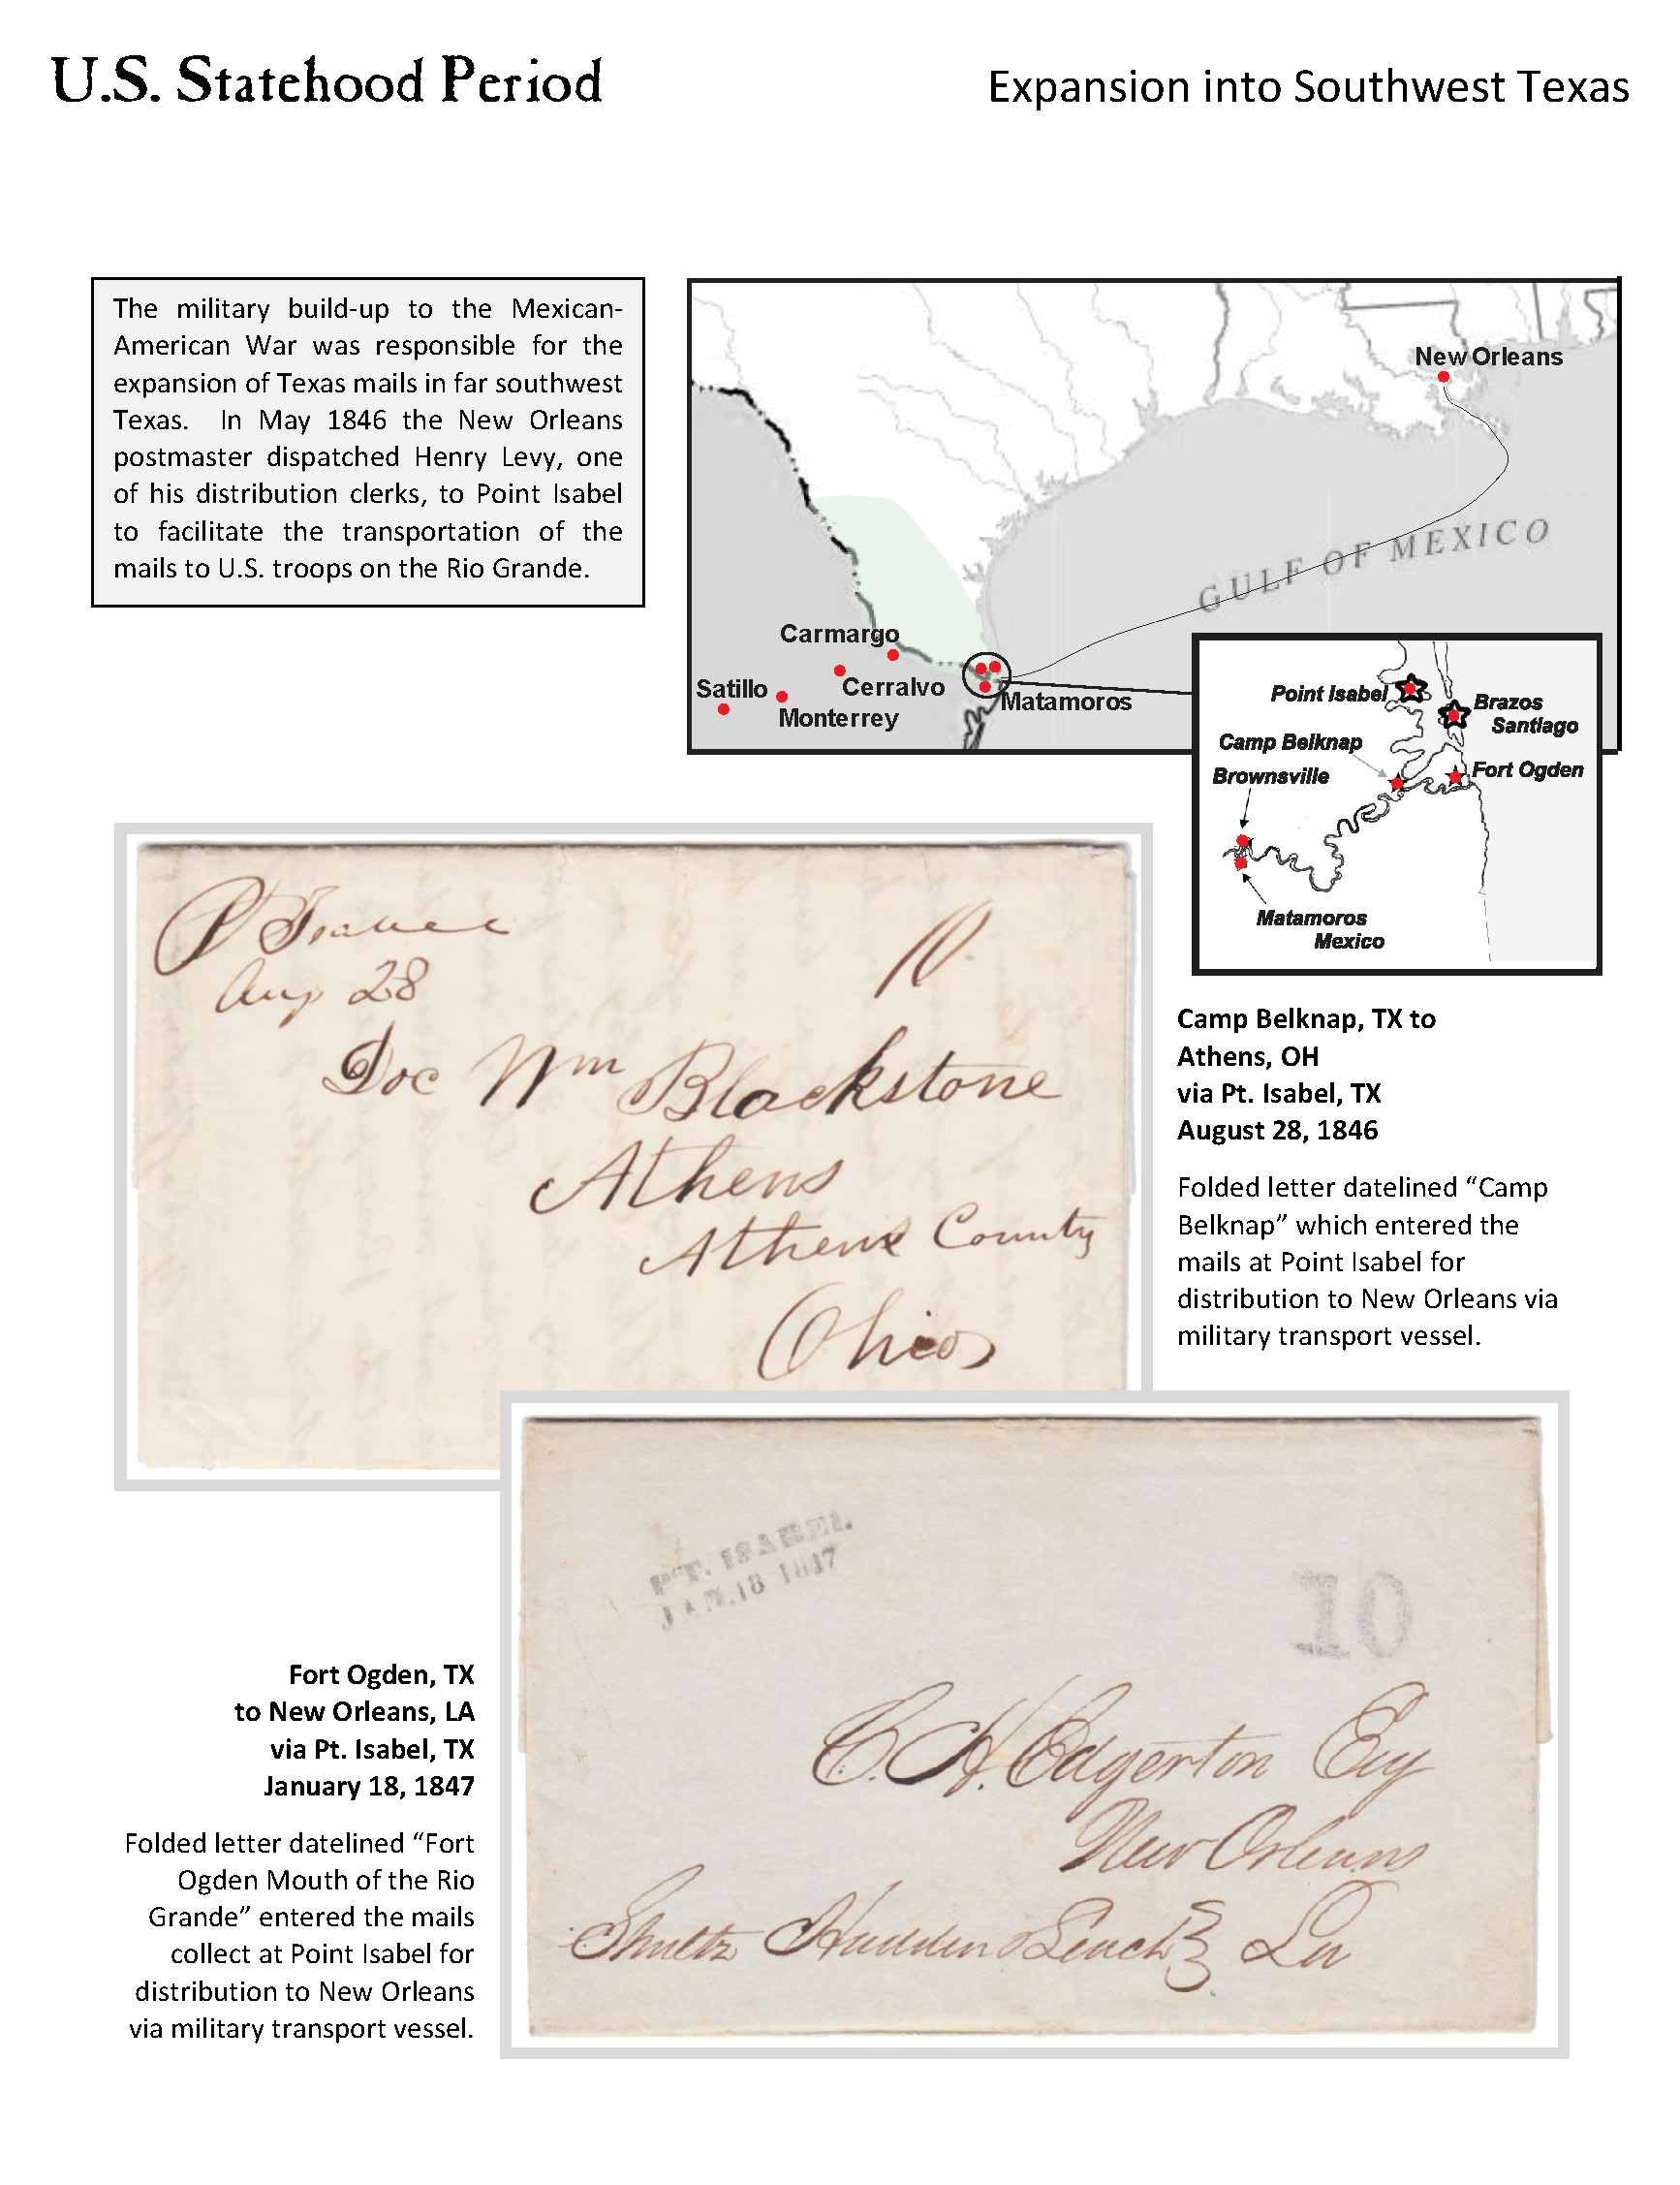 U.S. Statehood Period
Expansion into Southwest Texas
The military build-up to the Mexican-
American War was responsible for the
expansion of Texas mails in far southwest
Texas. In May 1846 the New Orleans
postmaster dispatched Henry Levy, one
of his distribution clerks, to Point Isabel
to facilitate the transportation of the
mails to U.S. troops on the Rio Grande.
New Orleans
GULF OF MEXICO
Carmargo
Cerralvo
Satillo
Monterrey
Matamoros
Point Isabel
Brazos
Santiago
Camp Belknap
Brownsville
Fort Ogden
Matamoros
Mexico
P Isabel
Aug 28
10
Doc Wm Blackstone
Athens
Athens County
Ohio
Camp Belknap, TX to
Athens, OH
via Pt. Isabel, TX
August 28, 1846
Folded letter datelined “Camp
Belknap” which entered the
mails at Point Isabel for
distribution to New Orleans via
military transport vessel.
PT. ISABEL
JAN.18 1847
10
C. H. Edgerton Esq
New Orleans
La
Fort Ogden, TX
to New Orleans, LA
via Pt. Isabel, TX
January 18, 1847
Folded letter datelined “Fort
Ogden Mouth of the Rio
Grande” entered the mails
collect at Point Isabel for
distribution to New Orleans
via military transport vessel.